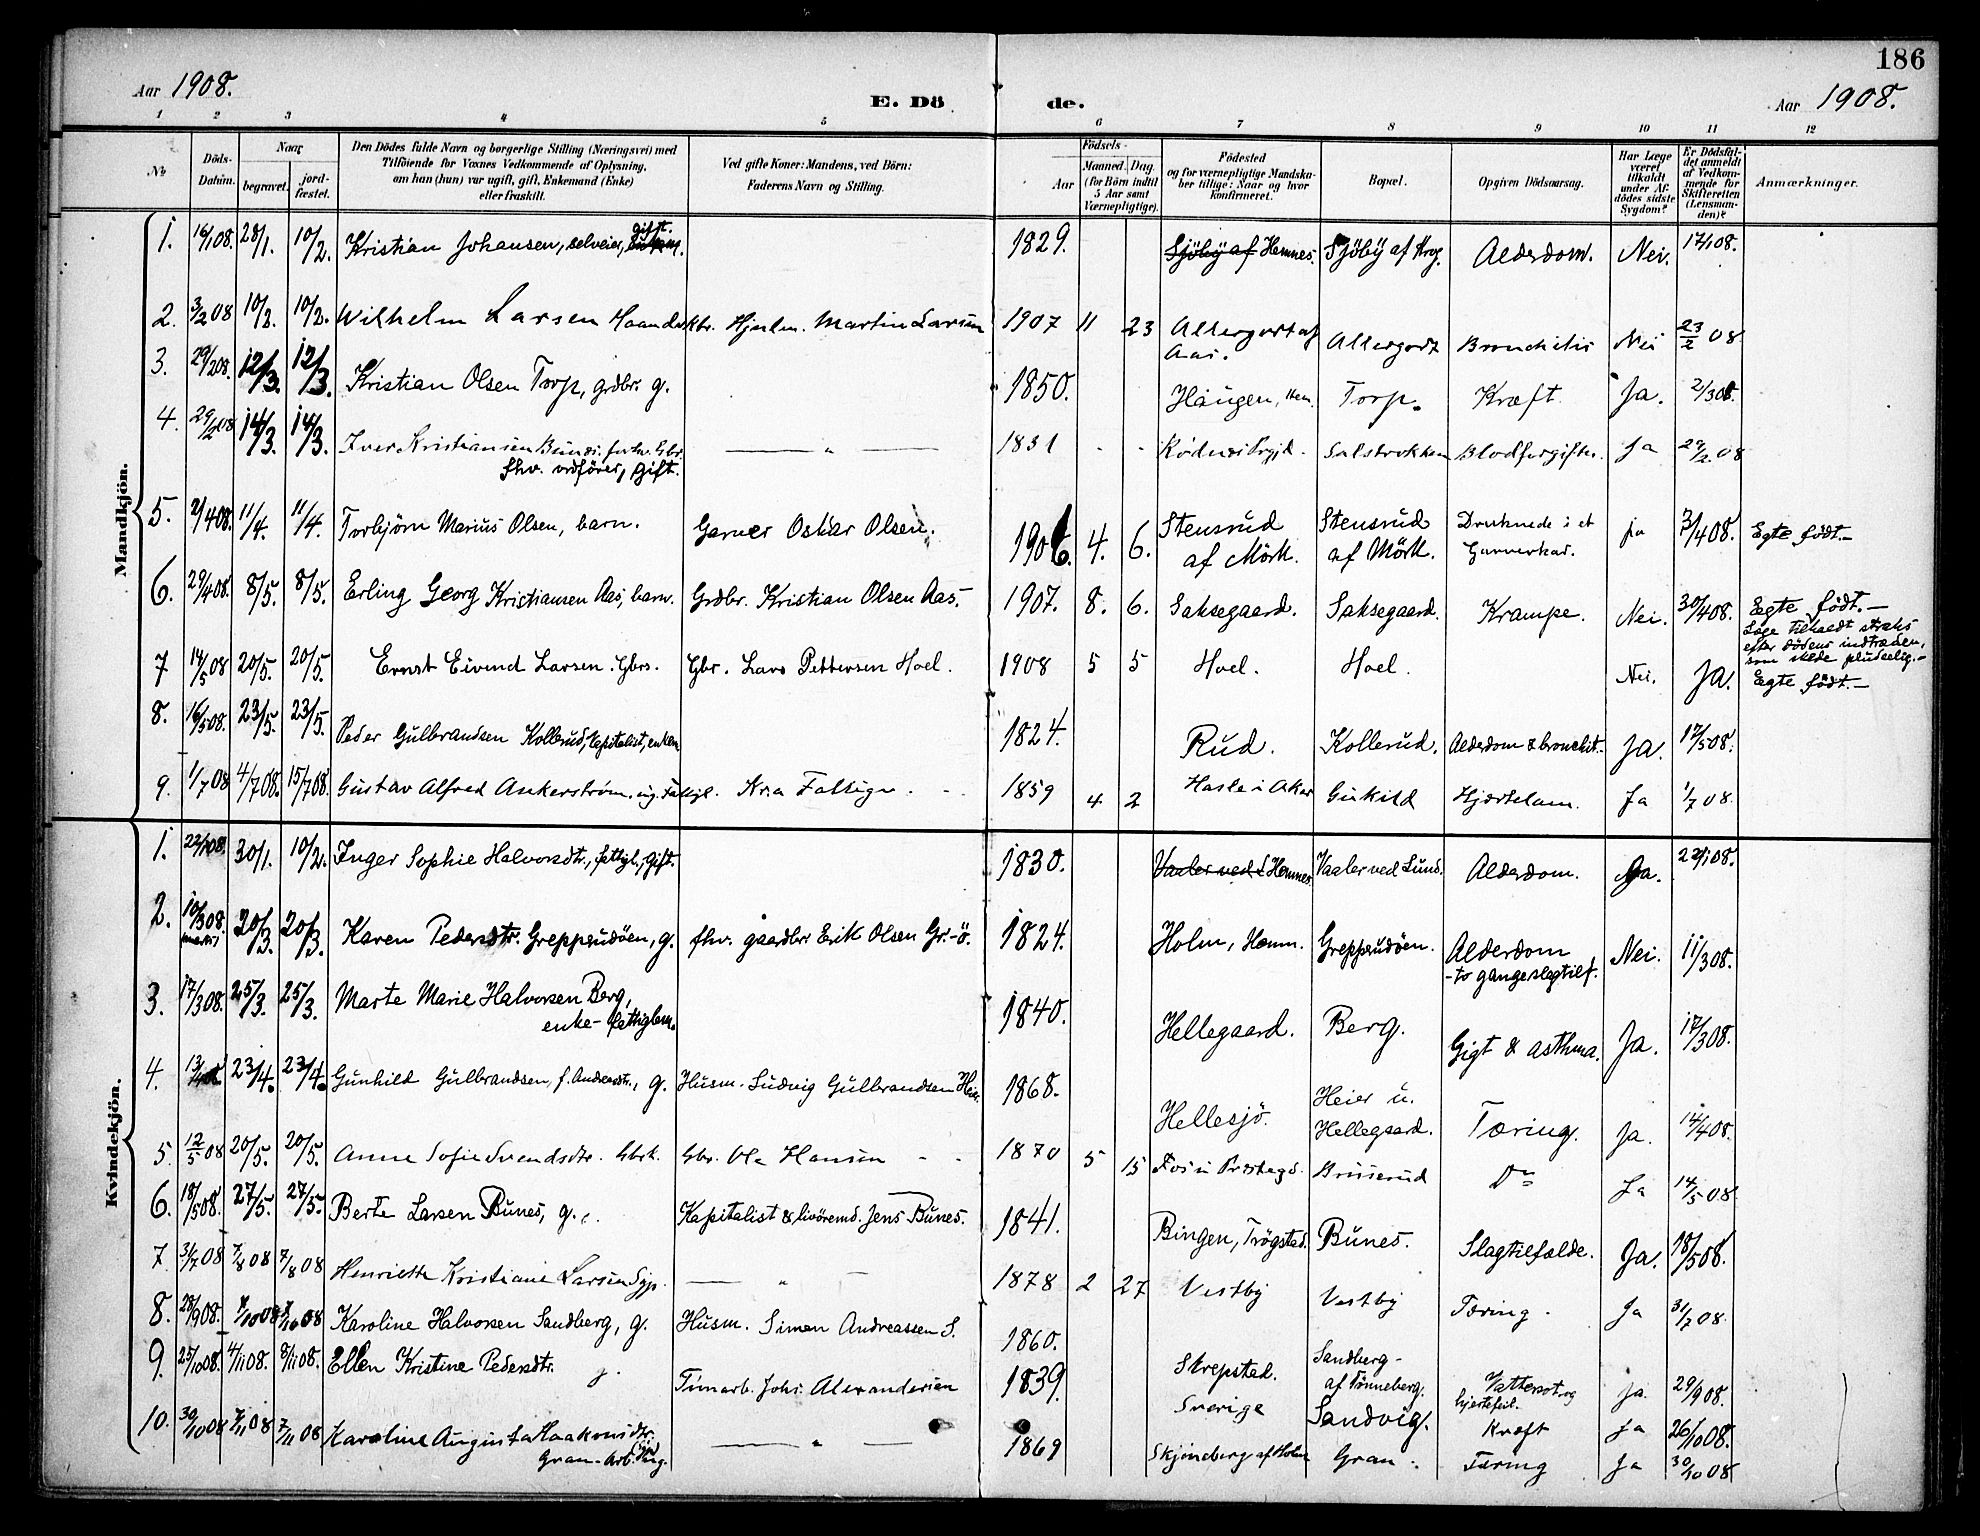 186
Aar 1908.
E. Dö de.
Aar 1908.
1 2 3 4 5 6 7 8 9 10 11 12
No.
Döds-Datum.
Naar
begravet.
jord-fæstet.
Den Dödes fulde Navn og borgerlige Stilling (Næringsvei) med
Tilföiende for Voxnes Vedkommende af Oplysning,
om han (hun) var ugift, gift, Enkemand (Enke)
eller fraskilt.
Ved gifte Koner: Mandens, ved Börn:
Faderens Navn og Stilling.
Födsels-
Aar
Maaned. Dag.
(for Börn indtil
5 Aar samt
Værnepligtige).
Födested
og for værnepligtige Mandska-
ber tillige: Naar og hvor
konfirmeret.
Bopæl.
Opgiven Dödsaarsag.
Har Læge
været
tilkaldt
under Af-
dödes sidste
Sygdom?
Er Dödsfal-
det anmeldt
af Vedkom-
mende for
Skifteretten
(Lensman-
den)?
Anmærkninger.
Mandkjön.
1. 16/1 08. 28/1. 10/2. Kristian Johansen, selveier, gift. 1829. Sjöby af Hemnes. Sjöby af Krog. Alderdom. Nei. 17/1 08.
2. 3/2 08 10/2. 10/2. Wilhelm Larsen Haandv Hjulm. Martin Larsen 1907 11 23 Altergodt af Aas. Altergodt Bronchitis Nei 23/2 08
3. 29/2 08. 12/3. 12/3. Kristian Olsen Torp, grdbr. g. 1850. Haugen, Hem. Torp. Kræft. Ja. 2/3 08.
4. 29/2 08 14/3. 14/3. Iver Kristiansen forhv. Gbr. fhv. ordförer, gift. — " — 1831 - - Rödenes Prgjd. Sulstrokken Blodforgiftn. Ja 29/2 08
5. 2/4 08. 11/4. 11/4. Torbjörn Marius Olsen, barn. Garver Oskar Olsen. 1906. 4. 6. Stensrud af Mörk. Stensrud af Mörk. Druknede i et Garverkar. ja 3/4 08. Egte födt.—
6. 29/4 08. 8/5. 8/5. Erling Georg Kristiansen Aas, barn. Grdbr. Kristian Olsen Aas. 1907. 8. 6. Saksegaard. Saksegaard. Krampe. Nei. 30/4 08. Egte födt.—
Læge tilkaldt straks
efter dödens indtræden,
som skede pludselig.—
7 14/5 08 20/5. 20/5. Ernst Eivind Larsen. Gbrs. Gbr. Lars Pettersen Hoel. 1908 5 5 Hoel. Hoel. Nei. Ja. Egte födt.—
8. 16/5 08. 23/5. 23/5. Peder Gulbrandsen Kollerud, kapitalist, enkem 1824. Rud. Kollerud. Alderdom & bronchit. Ja. 17/5 08.
9. 1/7 08 4/7 08. 15/7 08. Gustav Alfred Ankerström. ug. Fattigl. Kr.a Fattigv. 1859 4 2 Hasle i Aker Gukild Hjertelam. Ja 1/7 08.
Kvindekjön.
1. 22/1 08. 30/1. 10/2. Inger Sophie Halvorsdtr., fattigl., gift. 1830. Vaaler ved L Hemnes Vaaler ved Lund. Alderdom. Ja. 22/1 08.
2. 10/3 08. 20/3. 20/3. Karen Pedersdtr. Greppsrudöen, g. fhv. gaardbr. Erik Olsen Gr.-ö. 1824. Holm, Hemn. Greppsrudöen. Alderdom -to ganger slagtilf. Nei. 11/3 08.
3. 17/3 08. 25/3. 25/3. Marte Marie Halvorsen Berg, enke- fattiglem. 1840. Hellegaard. Berg. Gigt & asthma. Ja. 17/3 08.
4. 13/4 23/4. 23/4. Gunhild Gulbrandsen, f. Andersdtr., g. Husm. Ludvig Gulbrandsen Heier. 1868. Hellesjö. Heier u. Hellegaard. Tæring. Ja. 14/4 08.
5. 12/5 08 20/5. 20/5. Anne Sofie Svendsdtr. Gbrk. Gbr. Ole Hansen 1870 5 15 Fos i Prestegd. Do Ja 14/5 08
6. 18/5 08. 27/5. 27/5. Berte Larsen Bunes, g. Kapitalist & livöremd. Jens Bunes. 1841. Bingen, Trögstad. Bunes. Slagtilfælde. Ja. 18/5 08.
7. 31/7 08 7/8 08 7/8 08 Henriette Kristiane Larsen Syp. — " — 1878 2 27 Vestby Vestby Tæring. Ja 31/7 08.
8. 28/9 08. 7/10 08 7/10 08 Karoline Halvorsen Sandberg, g. Husm. Simen Andreassen S. 1860. Skrepstad. Sandberg- af Tönneberg. Vattersot og hjertefeil. Ja. 29/9 08.
9. 25/10 08. 4/11 08. 8/11 08. Ellen Kristine Pedersdtr. g. Tömarb. Johs. Alexandersen 1839. Sverige Sandvig. Kræft Ja 26/10 08.
10. 30/10 08 7/11 08 7/11 08 Karoline Augusta Haakonsdtr. Gran-Arb. — " — 1869 Skjöneberg af Holm Gran. Tæring Ja 30/10 08